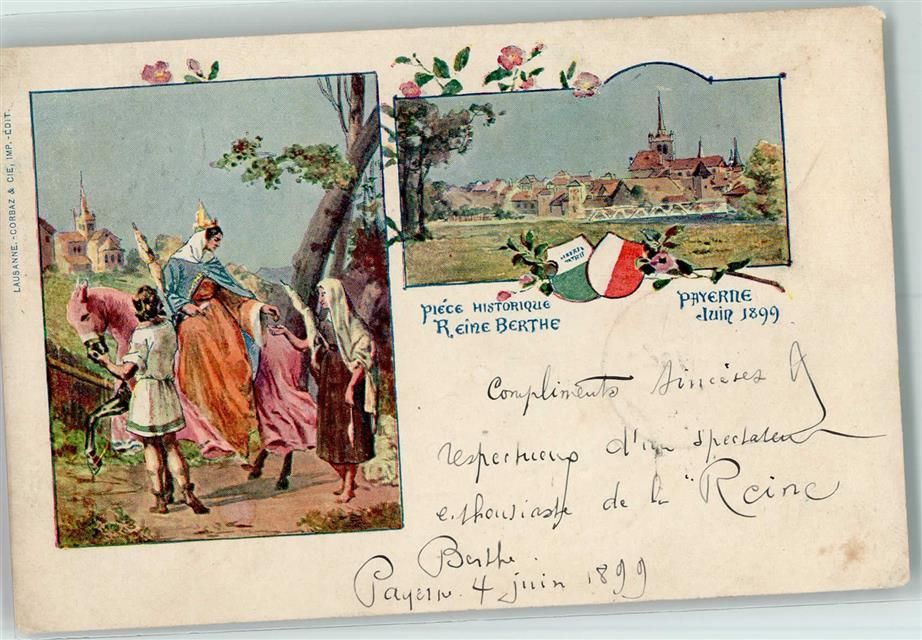 LAUSANNE.-CORBAZ & CIE, IMP.-ÉDIT.
PIÉCE HISTORIQUE
REINE BERTHE
PAYERNE
JUIN 1899
LIBERTÉ
PATRIE
Compliments sincères &
respectueux d'un spectateur
enthousiaste de la "Reine
Berthe.
Payerne 4 juin 1899